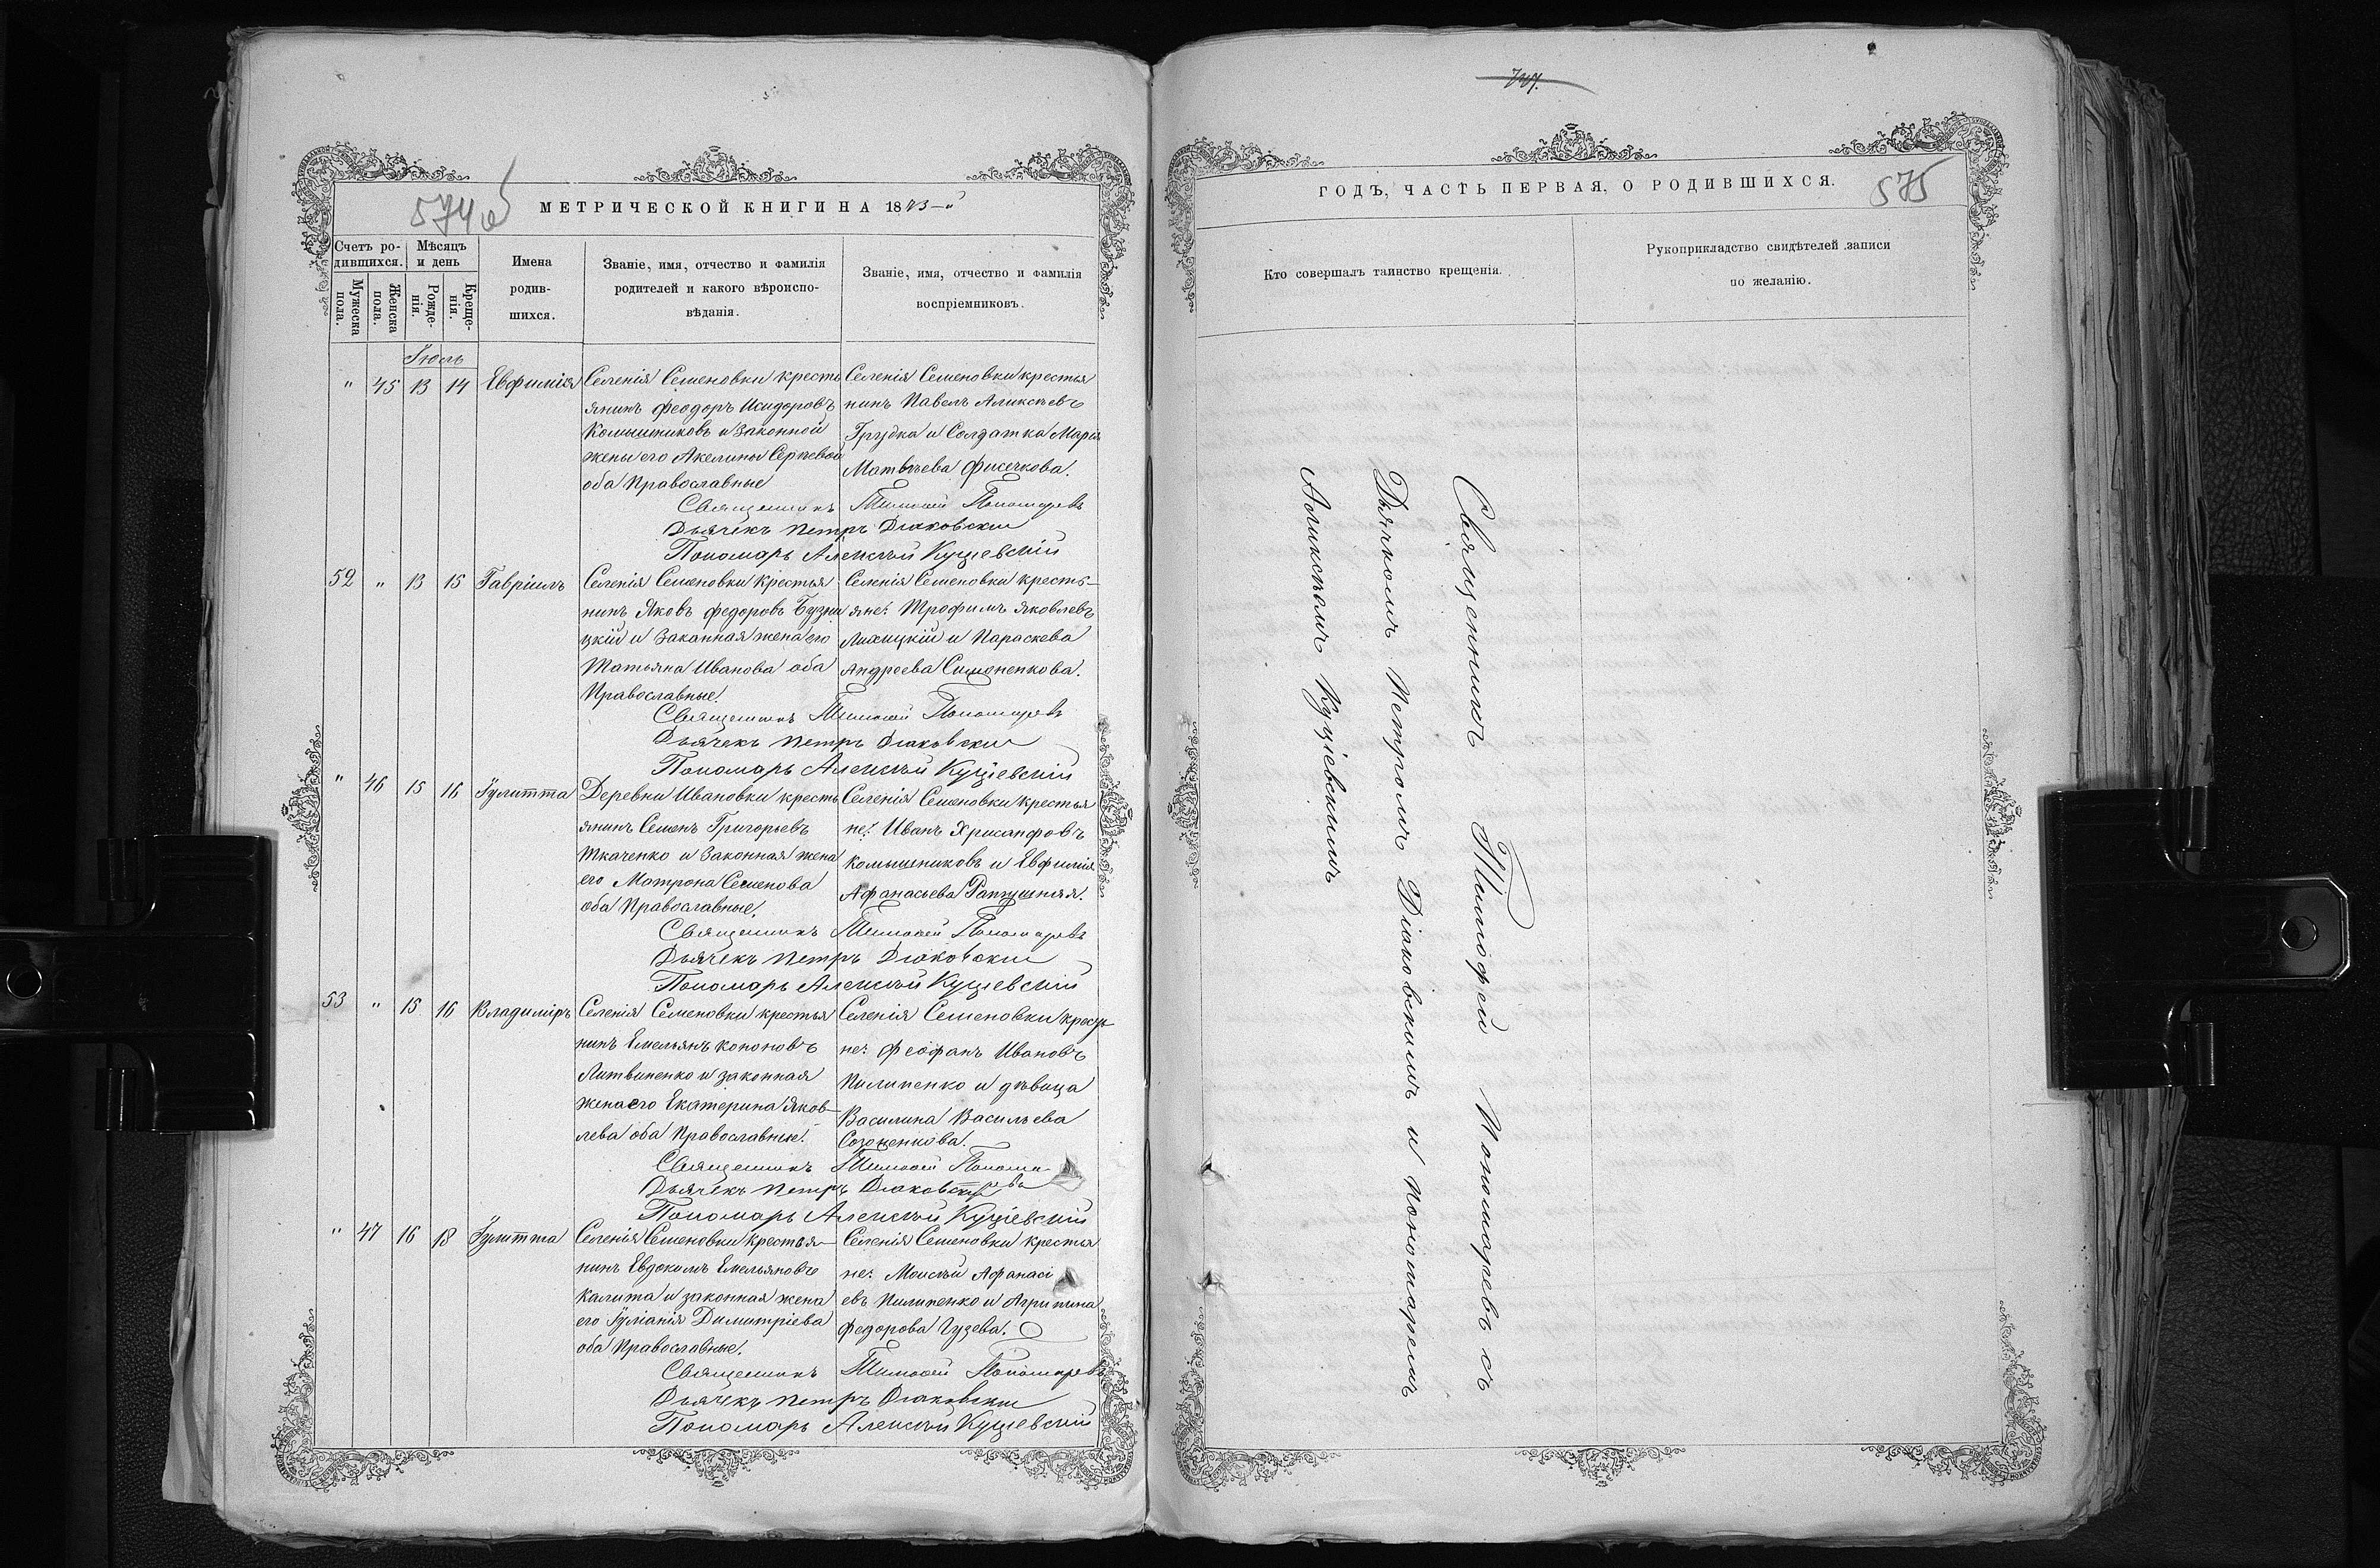 574об
МЕТРИЧЕСКОЙ КНИГИ НА 18
Счетъ ро-
дившихся.
Мѣсяцъ
и день
Мужеска
пола.
Женска
пола.
Рожде-
нія.
Креще-
нія.
Имена
родив-
шихся.
Званіе, имя, отчество и фамилія
родителей и какого вѣроиспо-
вѣданія.
Званіе, имя, отчество и фамилія
воспріемниковъ.
Іюль
" 45 13 14 Евфимія
Селенія Семеновки кресть
янинъ Феодоръ Исидоровъ
Комышниковъ и законной
жены его Акелины Сергѣевой
оба Православные
Селенія Семеновки крестья
нинъ Павелъ Аликсѣевъ
Грудка и Солдатка Марія
Матвѣева Фисечкова.
Священникъ Тимофей Пономаревъ
Дьячекъ Петръ Діаковскій
Пономарь Алексѣй Куціевскій
52 " 13 15 Гавріилъ
Селенія Семеновки Крестья
нинъ Яковъ Федоровъ Бузни
цкій и Законная жена его
Татьяна Иванова оба
Православные.
Селенія Семеновки кресть-
яне: Трофимъ Яковлевъ
Лихицкій и Параскева
Андреева Симоненкова.
Священникъ Тимофей Пономаревъ
Дьячекъ Петръ Діаковскій
Пономарь Алексѣй Куціевскій
" 46 15 16 Іулитта
Деревни Ивановки кресть
янинъ Семенъ Григорьевъ
Ткаченко и Законная жена
его Матрона Семенова
оба Православные.
Селенія Семеновки крестья
не: Иванъ Хрисанфовъ
комышниковъ и Евфимія
Афанасьева Ратушняя.
Священникъ Тимофей Пономаревъ
Дьячекъ Петръ Діаковскій
Пономарь Алексѣй Куціевскій
53 " 15 16 Владиміръ
Селенія Семеновки крестья
нинъ Емельянъ Кононовъ
Литвиненко и законная
жена его Екатерина Яков-
лева оба Православные.
Селенія Семеновки крестья
не: Феофанъ Ивановъ
Пилипенко и дѣвица
Василина Васильева
Созоненкова.
Священникъ Тимофей Понома-
ревъ
Дьячекъ Петръ Діаковскій
Пономарь Алексѣй Куціевскій
" 47 16 18 Іулитта
Селенія Семеновки Крестья-
нинъ Евдокимъ Емельяновъ
Калита и законная жена
его Іуліанія Димитріева
оба Православные.
Селенія Семеновки крестья
не: Моисѣй Афанасі
евъ Пилипенко и Агрипина
Федорова Гузева.
Священникъ Тимофей Пономаревъ
Дьячекъ Петръ Діаковскій
Пономарь Алексѣй Куціевскій
575
ГОДЪ, ЧАСТЬ ПЕРВАЯ, О РОДИВШИХСЯ.
Кто совершалъ таинство крещенія.
Рукоприкладство свидѣтелей записи
по желанію.
Священникъ Тимофей Пономаревъ съ
Дьячкомъ Петромъ Діаковскимъ и Пономаремъ
Аликсѣемъ Куціевскимъ